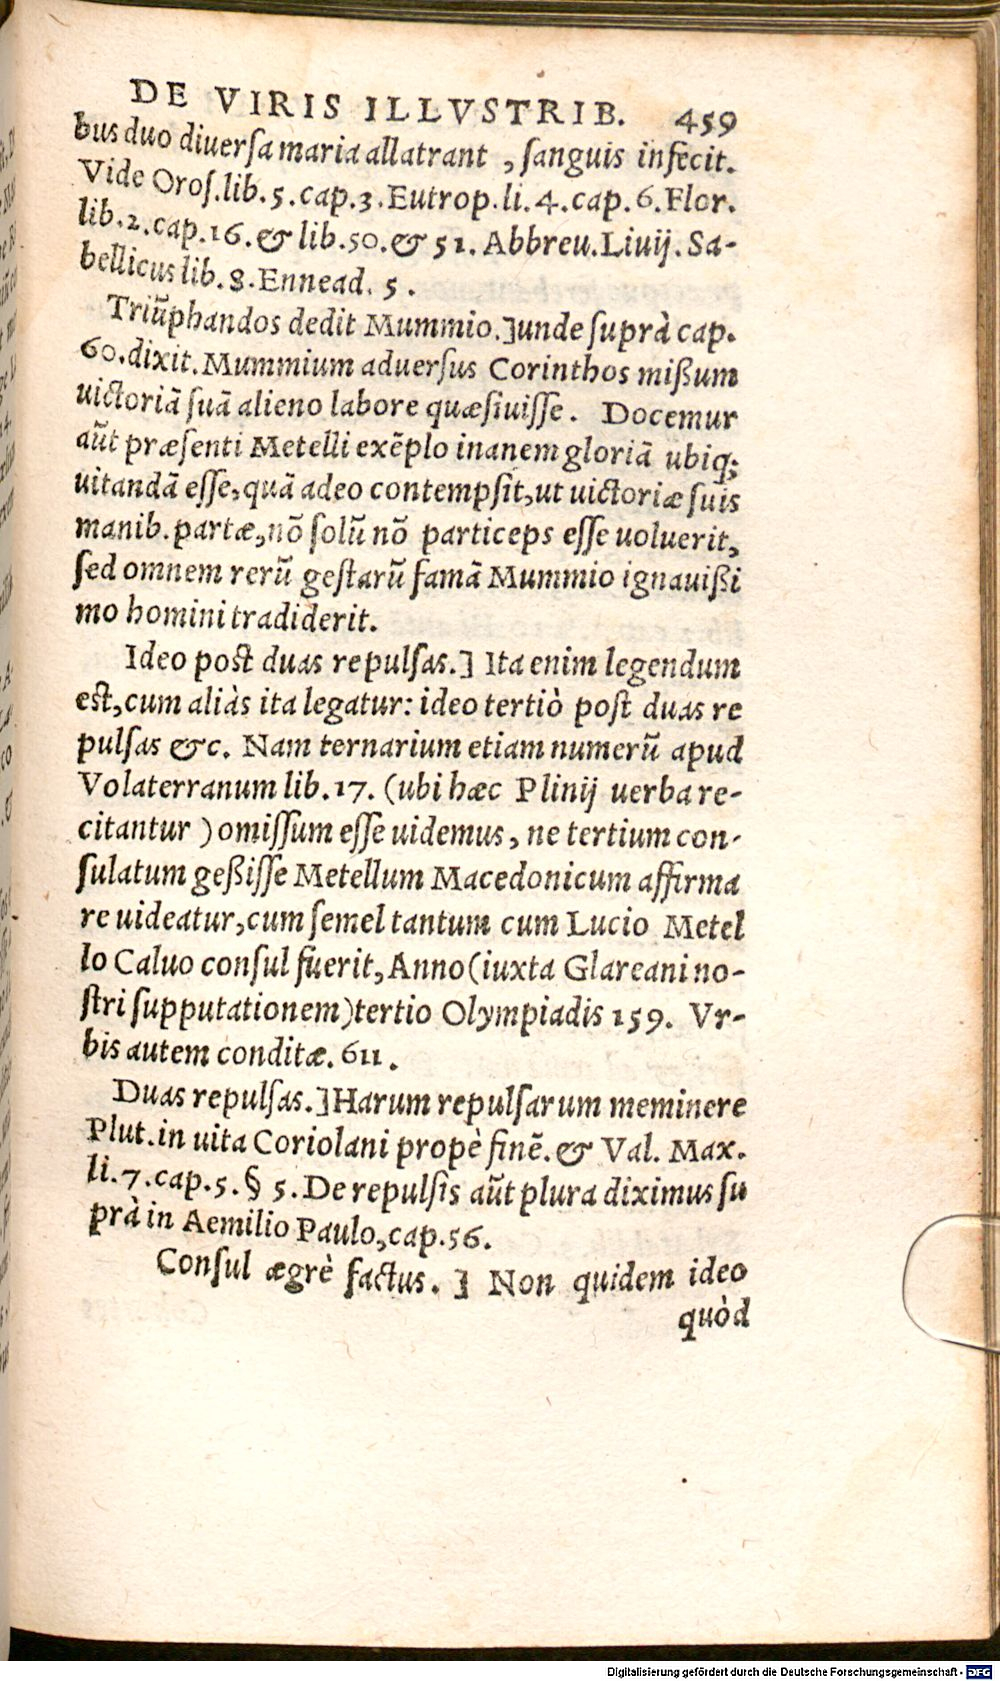 DE VIRIS ILLVSTRIB. 459
bus duo diuersa maria allatrant , sanguis infecit.
Vide Oros.lib.5.cap.3.Eutrop.li.4.cap.6.Flor.
lib.2.cap.16.& lib.50.& 51. Abbreu.Liuij. Sa-
bellicus lib.8.Ennead. 5 .
Triũphandos dedit Mummio.]unde suprà cap.
60.dixit.Mummium aduersus Corinthos mißum
uictoriã suã alieno labore quæsiuisse. Docemur
aũt præsenti Metelli exẽplo inanem gloriã ubiq;
uitandã esse,quã adeo contempsit,ut uictoriæ suis
manib.partæ,nõ solũ nõ particeps esse uoluerit,
sed omnem rerũ gestarũ famã Mummio ignauißi
mo homini tradiderit.
Ideo post duas repulsas.] Ita enim legendum
est,cum aliàs ita legatur: ideo tertiò post duas re
pulsas &c. Nam ternarium etiam numerũ apud
Volaterranum lib.17. (ubi hæc Plinij uerba re-
citantur ) omissum esse uidemus, ne tertium con-
sulatum geßisse Metellum Macedonicum affirma
re uideatur,cum semel tantum cum Lucio Metel
lo Caluo consul fuerit, Anno(iuxta Glareani no-
stri supputationem)tertio Olympiadis 159. Vr-
bis autem conditæ. 611 .
Duas repulsas.]Harum repulsarum meminere
Plut.in uita Coriolani propè finẽ.& Val. Max.
li.7.cap.5.§ 5.De repulsis aũt plura diximus su
prà in Aemilio Paulo,cap.56.
Consul ægrè factus. ] Non quidem ideo
quòd
Digitalisierung gefördert durch die Deutsche Forschungsgemeinschaft - DFG